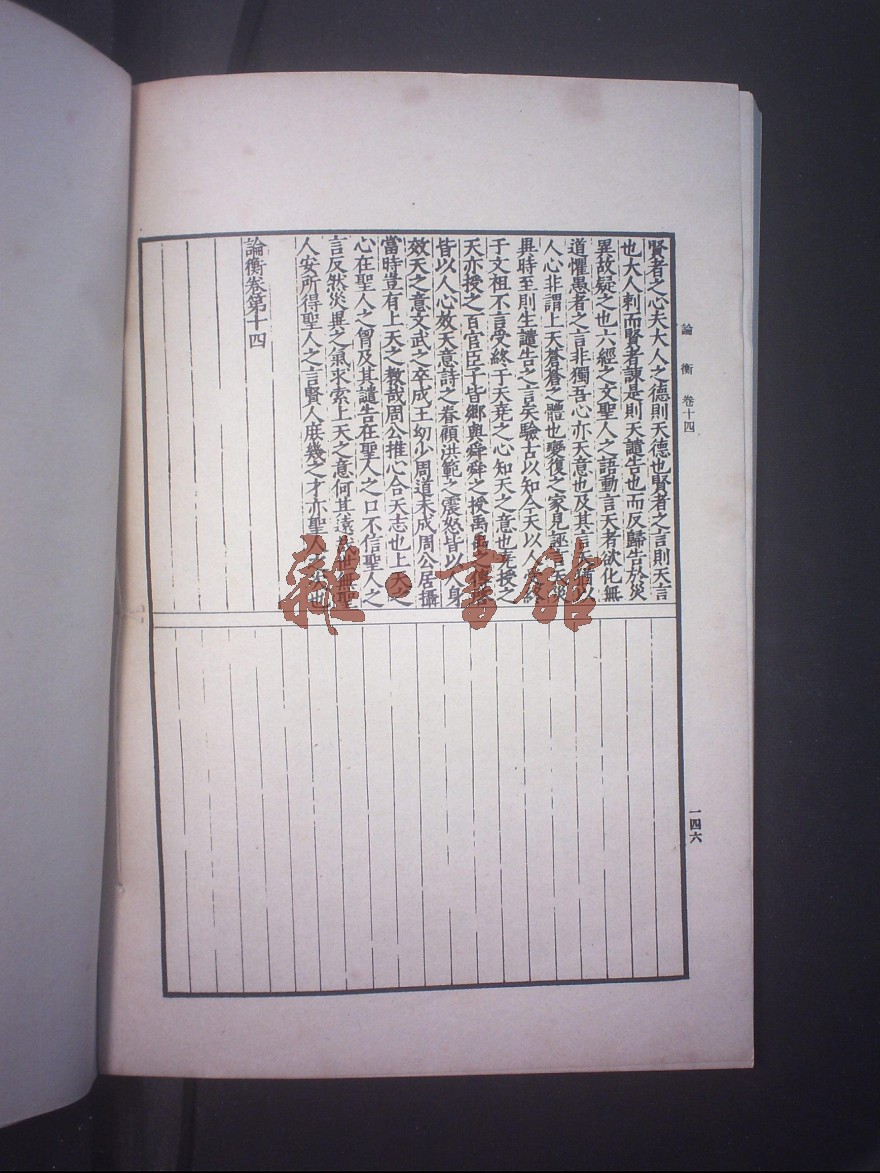 賢者之心夫大人之德則天德也賢者之言則天言
也大人刺而賢者諫是則天譴告也而反歸告於災
異故疑之也六經之文聖人之語動言天者欲化無
道懼愚者之言非獨吾心亦天意也及其言天猶以
人心非謂上天蒼蒼之體也變復之家見誣言天災
異時至則生譴告之言矣驗古以知今天以人受終
于文祖不言受終于天堯之心知天之意也堯授之
天亦授之百官臣子皆鄉與舜舜之授禹禹之傳啓
皆以人心效天意詩之眷顧洪範之震怒皆以人身
效天之意文武之卒成王幼少周道未成周公居攝
當時豈有上天之教哉周公推心合天志也上天之
心在聖人之胷及其譴告在聖人之口不信聖人之
言反然災異之氣求索上天之意何其遠哉世無聖
人安所得聖人之言賢人庶幾之才亦聖人之次也
論衡卷第十四
論衡 卷十四
一四六
雜·書館